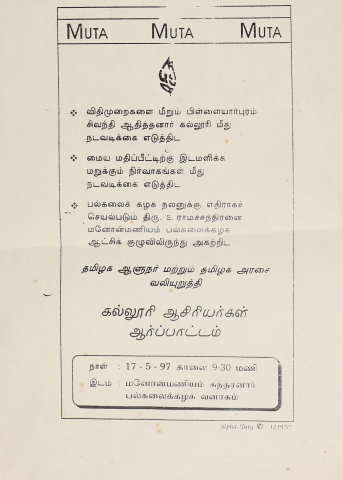 MUTA MUTA MUTA
❖ விதிமுறைகளை மீறும் பிள்ளையார்புரம்
சிவந்தி ஆதித்தனார் கல்லூரி மீது
நடவடிக்கை எடுத்திட
❖ மைய மதிப்பீட்டிற்கு இடமளிக்க
மறுக்கும் நிர்வாகங்கள் மீது
நடவடிக்கை எடுத்திட
❖ பல்கலைக் கழக நலனுக்கு எதிராகச்
செயல்படும் திரு. S. ராமச்சந்திரனை
மனோன்மணியம் பல்கலைக்கழக
ஆட்சிக் குழுவிலிருந்து அகற்றிட
தமிழக ஆளுநர் மற்றும் தமிழக அரசை
வலியுறுத்தி
கல்லூரி ஆசிரியர்கள்
ஆர்ப்பாட்டம்
நாள் : 17 - 5 - 97 காலை 9-30 மணி
இடம் : மனோன்மணியம் சுந்தரனார்
பல்கலைக்கழக வளாகம்
alpha, ©